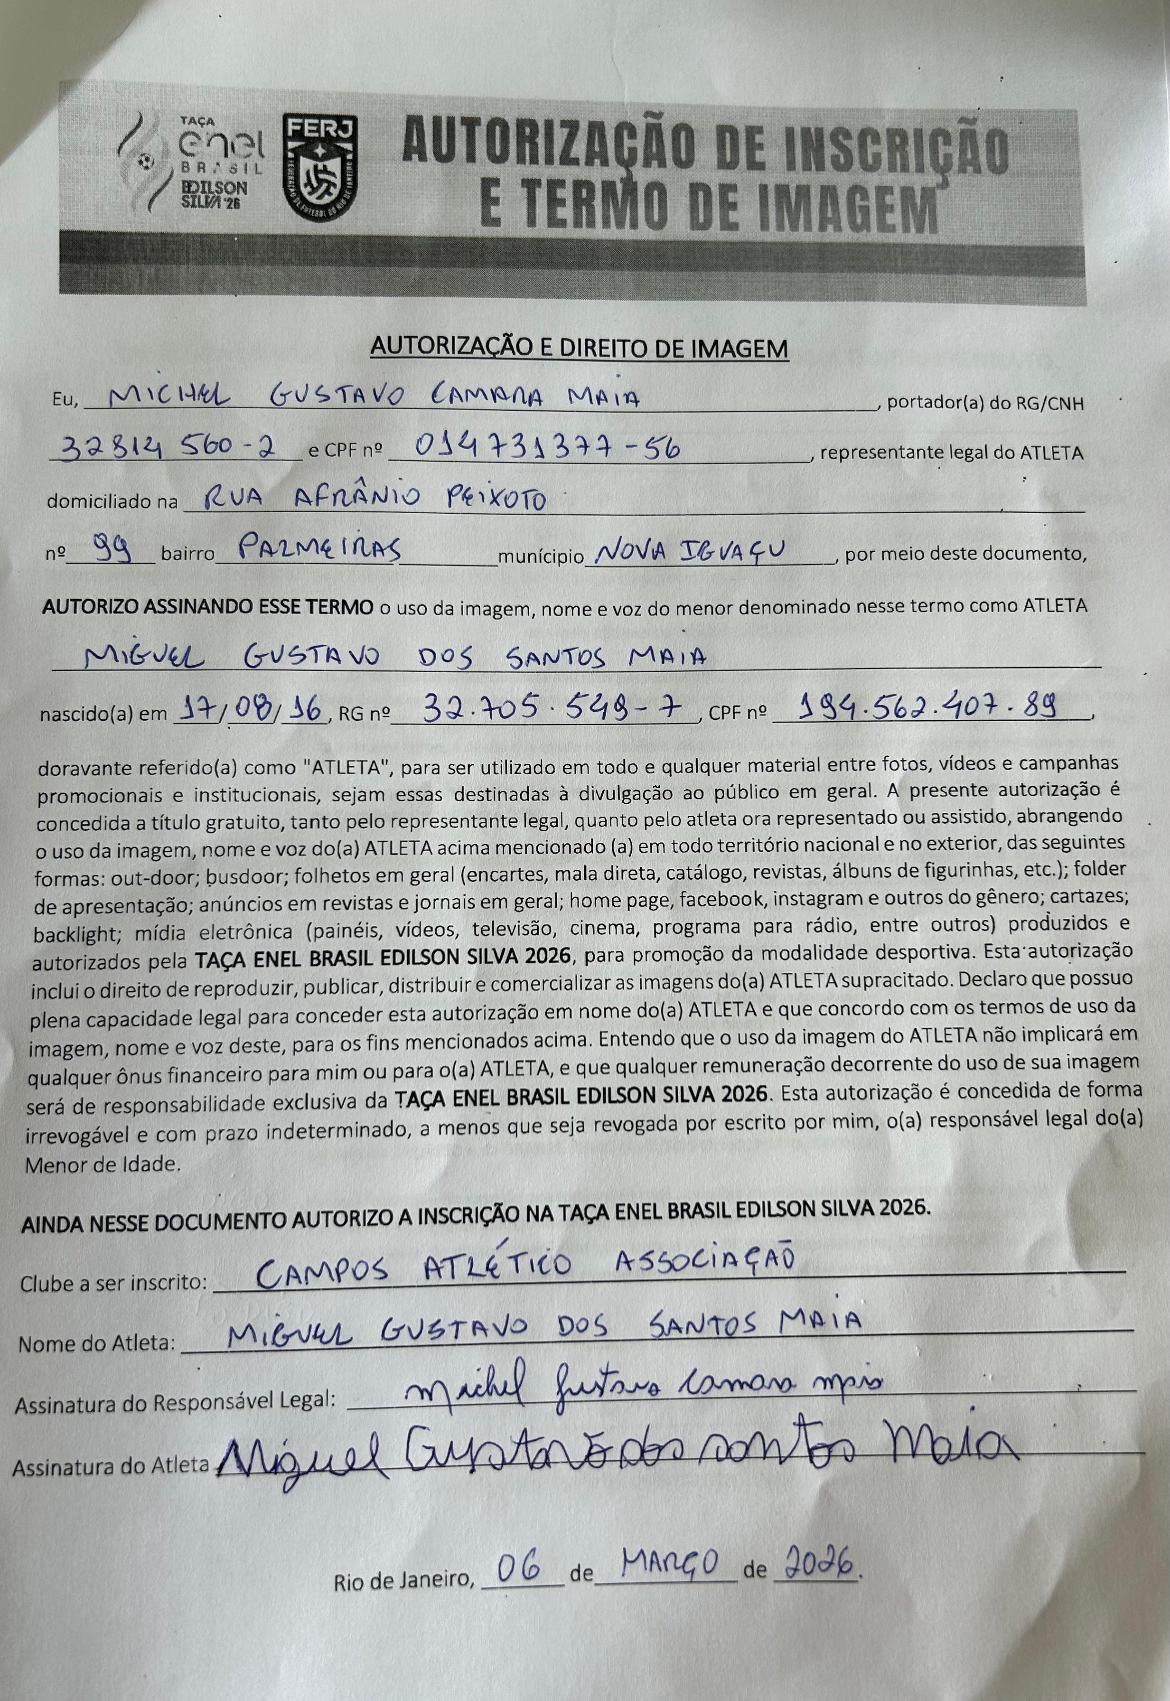 TAÇA
enel
BRASIL
EDILSON
SILVA '26
FERJ
FEDERAÇÃO DE FUTEBOL DO RIO DE JANEIRO
AUTORIZAÇÃO DE INSCRIÇÃO
E TERMO DE IMAGEM
AUTORIZAÇÃO E DIREITO DE IMAGEM
Eu, MICHEL GUSTAVO CAMARA MAIA, portador(a) do RG/CNH
32814 560-2 e CPF nº 014731377-56, representante legal do ATLETA
domiciliado na RUA AFRÂNIO PEIXOTO
nº 99 bairro PALMEIRAS munícipio NOVA IGUAÇU, por meio deste documento,
AUTORIZO ASSINANDO ESSE TERMO o uso da imagem, nome e voz do menor denominado nesse termo como ATLETA
MIGUEL GUSTAVO DOS SANTOS MAIA
nascido(a) em 17/08/16, RG nº 32.705.549-7, CPF nº 194.562.407.89,
doravante referido(a) como "ATLETA", para ser utilizado em todo e qualquer material entre fotos, vídeos e campanhas
promocionais e institucionais, sejam essas destinadas à divulgação ao público em geral. A presente autorização é
concedida a título gratuito, tanto pelo representante legal, quanto pelo atleta ora representado ou assistido, abrangendo
o uso da imagem, nome e voz do(a) ATLETA acima mencionado (a) em todo território nacional e no exterior, das seguintes
formas: out-door; busdoor; folhetos em geral (encartes, mala direta, catálogo, revistas, álbuns de figurinhas, etc.); folder
de apresentação; anúncios em revistas e jornais em geral; home page, facebook, instagram e outros do gênero; cartazes;
backlight; mídia eletrônica (painéis, vídeos, televisão, cinema, programa para rádio, entre outros) produzidos e
autorizados pela TAÇA ENEL BRASIL EDILSON SILVA 2026, para promoção da modalidade desportiva. Esta autorização
inclui o direito de reproduzir, publicar, distribuir e comercializar as imagens do(a) ATLETA supracitado. Declaro que possuo
plena capacidade legal para conceder esta autorização em nome do(a) ATLETA e que concordo com os termos de uso da
imagem, nome e voz deste, para os fins mencionados acima. Entendo que o uso da imagem do ATLETA não implicará em
qualquer ônus financeiro para mim ou para o(a) ATLETA, e que qualquer remuneração decorrente do uso de sua imagem
será de responsabilidade exclusiva da TAÇA ENEL BRASIL EDILSON SILVA 2026. Esta autorização é concedida de forma
irrevogável e com prazo indeterminado, a menos que seja revogada por escrito por mim, o(a) responsável legal do(a)
Menor de Idade.
AINDA NESSE DOCUMENTO AUTORIZO A INSCRIÇÃO NA TAÇA ENEL BRASIL EDILSON SILVA 2026.
Clube a ser inscrito: CAMPOS ATLÉTICO ASSOCIAÇÃO
Nome do Atleta: MIGUEL GUSTAVO DOS SANTOS MAIA
Assinatura do Responsável Legal: Michel Gustavo Camara Maia
Assinatura do Atleta Miguel Gustavo dos santos Maia
Rio de Janeiro, 06 de MARÇO de 2026.